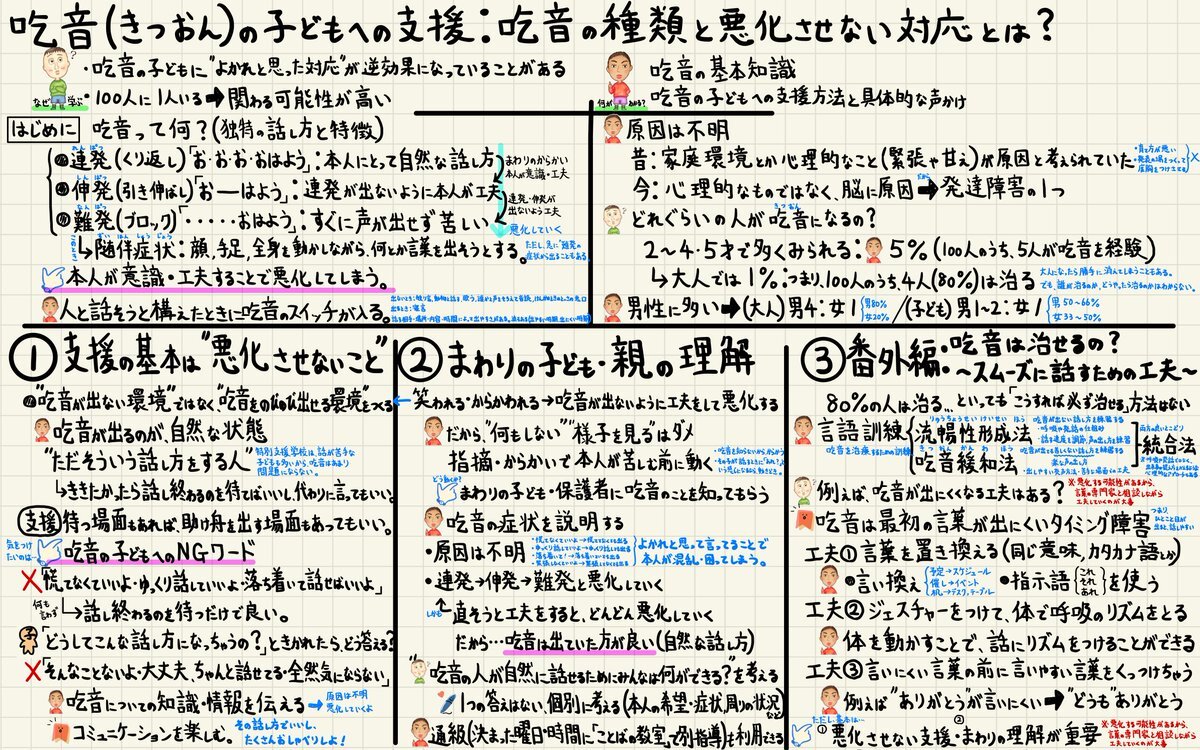 吃音(きつおん)の子どもへの支援:吃音の種類と悪化させない対応とは?
なぜ学ぶ
・吃音の子どもに"よかれと思った対応"が逆効果になっていることがある
・100人に1人いる➡関わる可能性が高い
何がわかる?
吃音の基本知識
吃音の子どもへの支援方法と具体的な声かけ
はじめに 吃音って何?(独特の話し方と特徴)
連発(くり返し)「お・お・お・おはよう」:本人にとって自然な話し方
まわりのからかい
本人が意識・工夫
伸発(引き伸ばし)「お―はよう」:連発が出ないように本人が工夫
連発・伸発が
出ないよう工夫
難発(ブロック)「・・・・・おはよう」:すぐに声が出せず苦しい
悪化していく
このとき
↳随伴症状:顔,手足,全身を動かしながら、何とか言葉を出そうとする。
ただし、急に"難発の
症状から出ることもある
本人が意識・工夫することで悪化してしまう。
人と話そうと構えたときに吃音のスイッチが入る。
原因は不明
昔:家庭環境とか心理的なこと(緊張や甘え)が原因と考えられていた
・育て方が悪い
今:心理的なものではなく、脳に原因➡発達障害の1つ
どれぐらいの人が吃音になるの?
2~4・5才で多くみられる:5%(100人のうち、5人が吃音を経験)
↳大人では1%:つまり、100人のうち、4人(80%)は治る
大人になったら勝手に消えてしまうこともある。
でも、誰が治るのか、どうやったら治るのかはわからない。
男性に多い➡(大人)男4:女1
男80%
女20%
/(子ども)男1~2:女1
男50~66%
女33~50%
①支援の基本は"悪化させないこと"
"吃音が出ない環境"ではなく、"吃音をのびのび出せる環境"をつくる
吃音が出るのが、自然な状態
"ただそういう話し方をする人"
特別支援学校は、話が苦手な
子どもも多いから、吃音はあまり
問題にならない。
↳ききたかったら話し終わるのを待てばいいし、代わりに言ってもいい。
支援 待つ場面もあれば、助け舟を出す場面もあってもいい。
気をつけ
たいのは…
吃音の子どもへのNGワード
×「慌てなくていいよ・ゆっくり話していいよ・落ち着いて話せばいいよ」
何も
言わず
↳話し終わるのを待つだけで良い。
「どうしてこんな話し方になっちゃうの?」ときかれたら、どう答える?
×「そんなことないよ・大丈夫、ちゃんと話せてる・全然気にならない」
吃音についての知識・情報を伝える
→原因は不明
悪化していくよ
コミュニケーションを楽しむ。
その話し方でいいし、
たくさんおしゃべりしよ!
②まわりの子ども・親の理解
←笑われる・からかわれる→吃音が出ないように工夫をして悪化する
だから、"何もしない""様子を見る"はダメ
指摘・からかいで本人が苦しむ前に動く
どう動くか?
まわりの子ども・保護者に吃音のことを知ってもらう
吃音の症状を説明する
・原因は不明
・慌てなくていいよ→慌てなくても出る
・ゆっくり話していいよ→ゆっくり話しても出る
よかれと思って言ってることで
本人が混乱・困ってしまう。
・連発→伸発→難発と悪化していく
しかも
直そうと工夫をすると、どんどん悪化していく
だから…吃音は出ていた方が良い(自然な話し方)
"吃音の人が自然に話せるためにみんなは何ができる?"を考える
1つの答えはない、個別に考える(本人の希望・症状,周りの状況など)
通級(決まった曜日・時間に「ことばの教室」で個別指導)を利用できる
③番外編・吃音は治せるの?
~スムーズに話すための工夫~
80%の人は治る…といっても「こうすれば必ず治せる」方法はない
言語訓練
吃音を治療するための訓練
流暢性形成法
吃音緩和法
統合法
例えば、吃音が出にくくなる工夫はある?
※悪化する可能性があるから、
言語の専門家と相談しながら
工夫していくのが大事
吃音は最初の言葉が出にくいタイミング障害
つまり、
ひとこと目が
出ると、話しやすい
工夫①言葉を置き換える(同じ意味,カタカナ語とか)
言い換え
予定→スケジュール
催し→イベント
机→デスク,テーブル
・指示語
これ
それ
あれ
を使う
工夫②ジェスチャーをつけて、体で呼吸のリズムをとる
体を動かすことで、話にリズムをつけることができる
工夫③言いにくい言葉の前に言いやすい言葉をくっつけちゃう
例えば"ありがとう"が言いにくい➡"どうも"ありがとう
ただし、基本は…
①悪化させない支援・②まわりの理解が重要
※悪化する可能性があるから、
言語の専門家と相談しながら
工夫していくのが大事